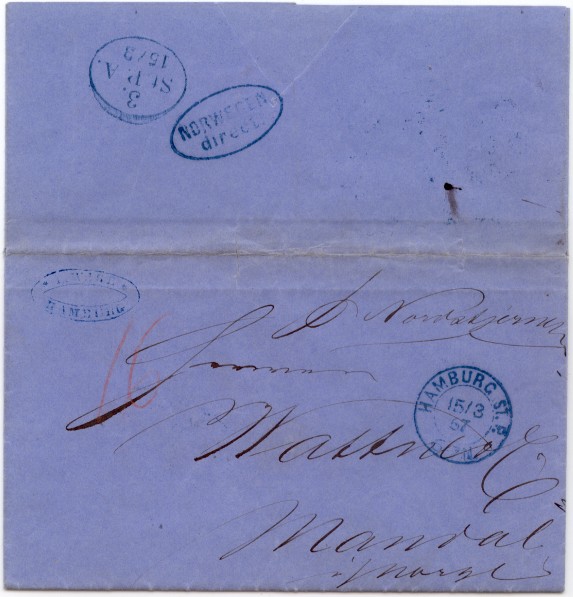 3.
St. P. A.
15/3
NORWEGEN
direct.
HAMBURG
16
p Nordstjernen
Herren
Wattne & C
Mandal
i Norge
HAMBURG. ST. P.
15/3
57